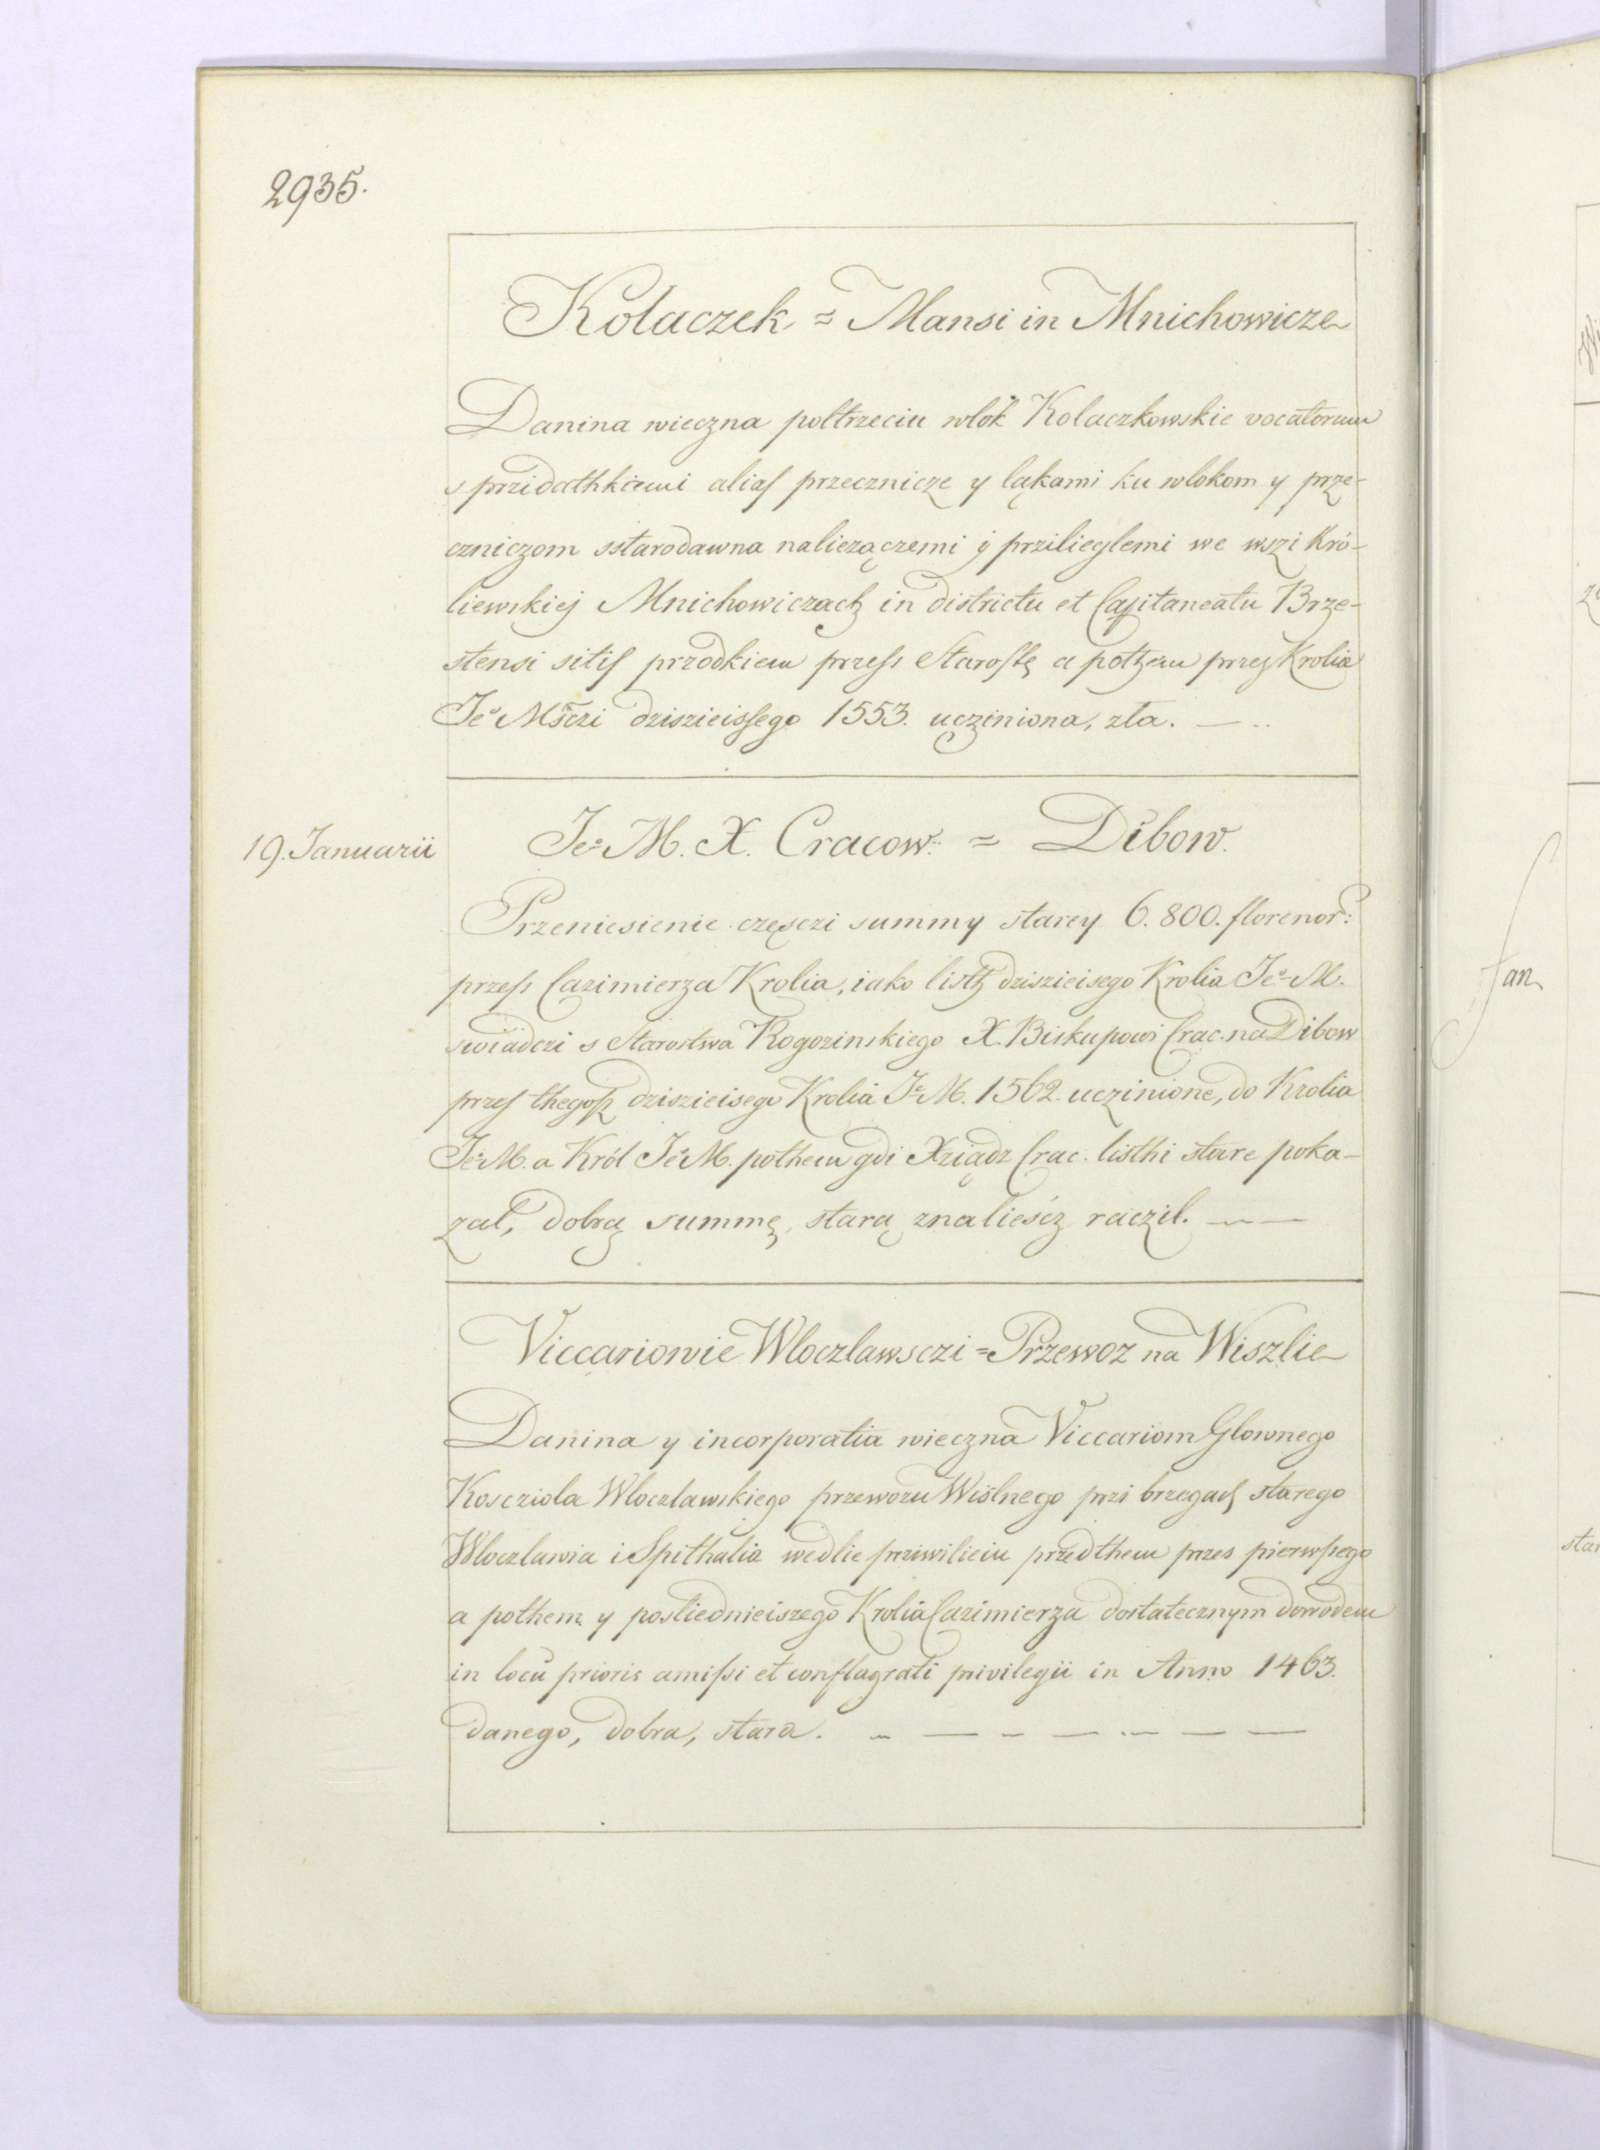 2935.
Kolaczek = Mansi in Mnichowicze
Danina wieczna połtrzeciu włók Kolaczkowskie vocatorum
s przidathkiemi alias przecznicze y ląkami ku wlokom y prze-
czniczom sstarodawna należączemi y przilieglemi we wszi Kró-
liewskiej Mnichowiczach in districtu et Capitaneatu Brze-
stensi sitis przodkiem przess Starostę a pothem przez Krolia
Je° Mśczi dziszieissego 1553. ucziniona, zła. —
19. Januarii
Je° M. X. Cracow: = Dibow.
Przeniesienie częsczi summy starey 6.800. florenor:
przess Cazimierza Krolia, iako listh dziszieisego Krolia Je° M.
swiadczi s Starostwa Rogozinskiego X. Biskupowi Crac. na Dibow
przes thegosz dziszieisego Krolia J° M. 1562. uczinione, do Krolia
Je° M. a Król Je° M. pothem gdi Xiądz Crac. listhi stare poka-
zał, dobrą summę starą znalieścz racził. —
Viccariowie Wloczlawsczi = Przewoz na Wiszlie
Danina y incorporatia wieczna Viccariom Glownego
Koscziola Wloczlawskiego przewozu Wislnego przi brzegach starego
Wloczlawia i Spithalia wedlie prziwilieiu przedthem przes pierwszego
a pothem y posliednieiszego Krolia Cazimierza dostatecznym dowodem
in locu prioris amissi et conflagrati privilegii in Anno 1463.
danego, dobra, stara. — — — — —
an
star